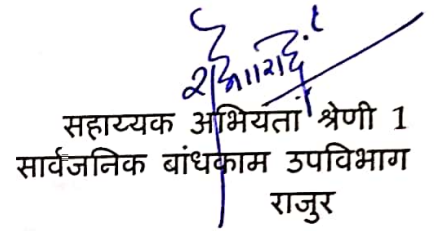 सहाय्यक अभियंता श्रेणी 1
सार्वजनिक बांधकाम उपविभाग
राजुर